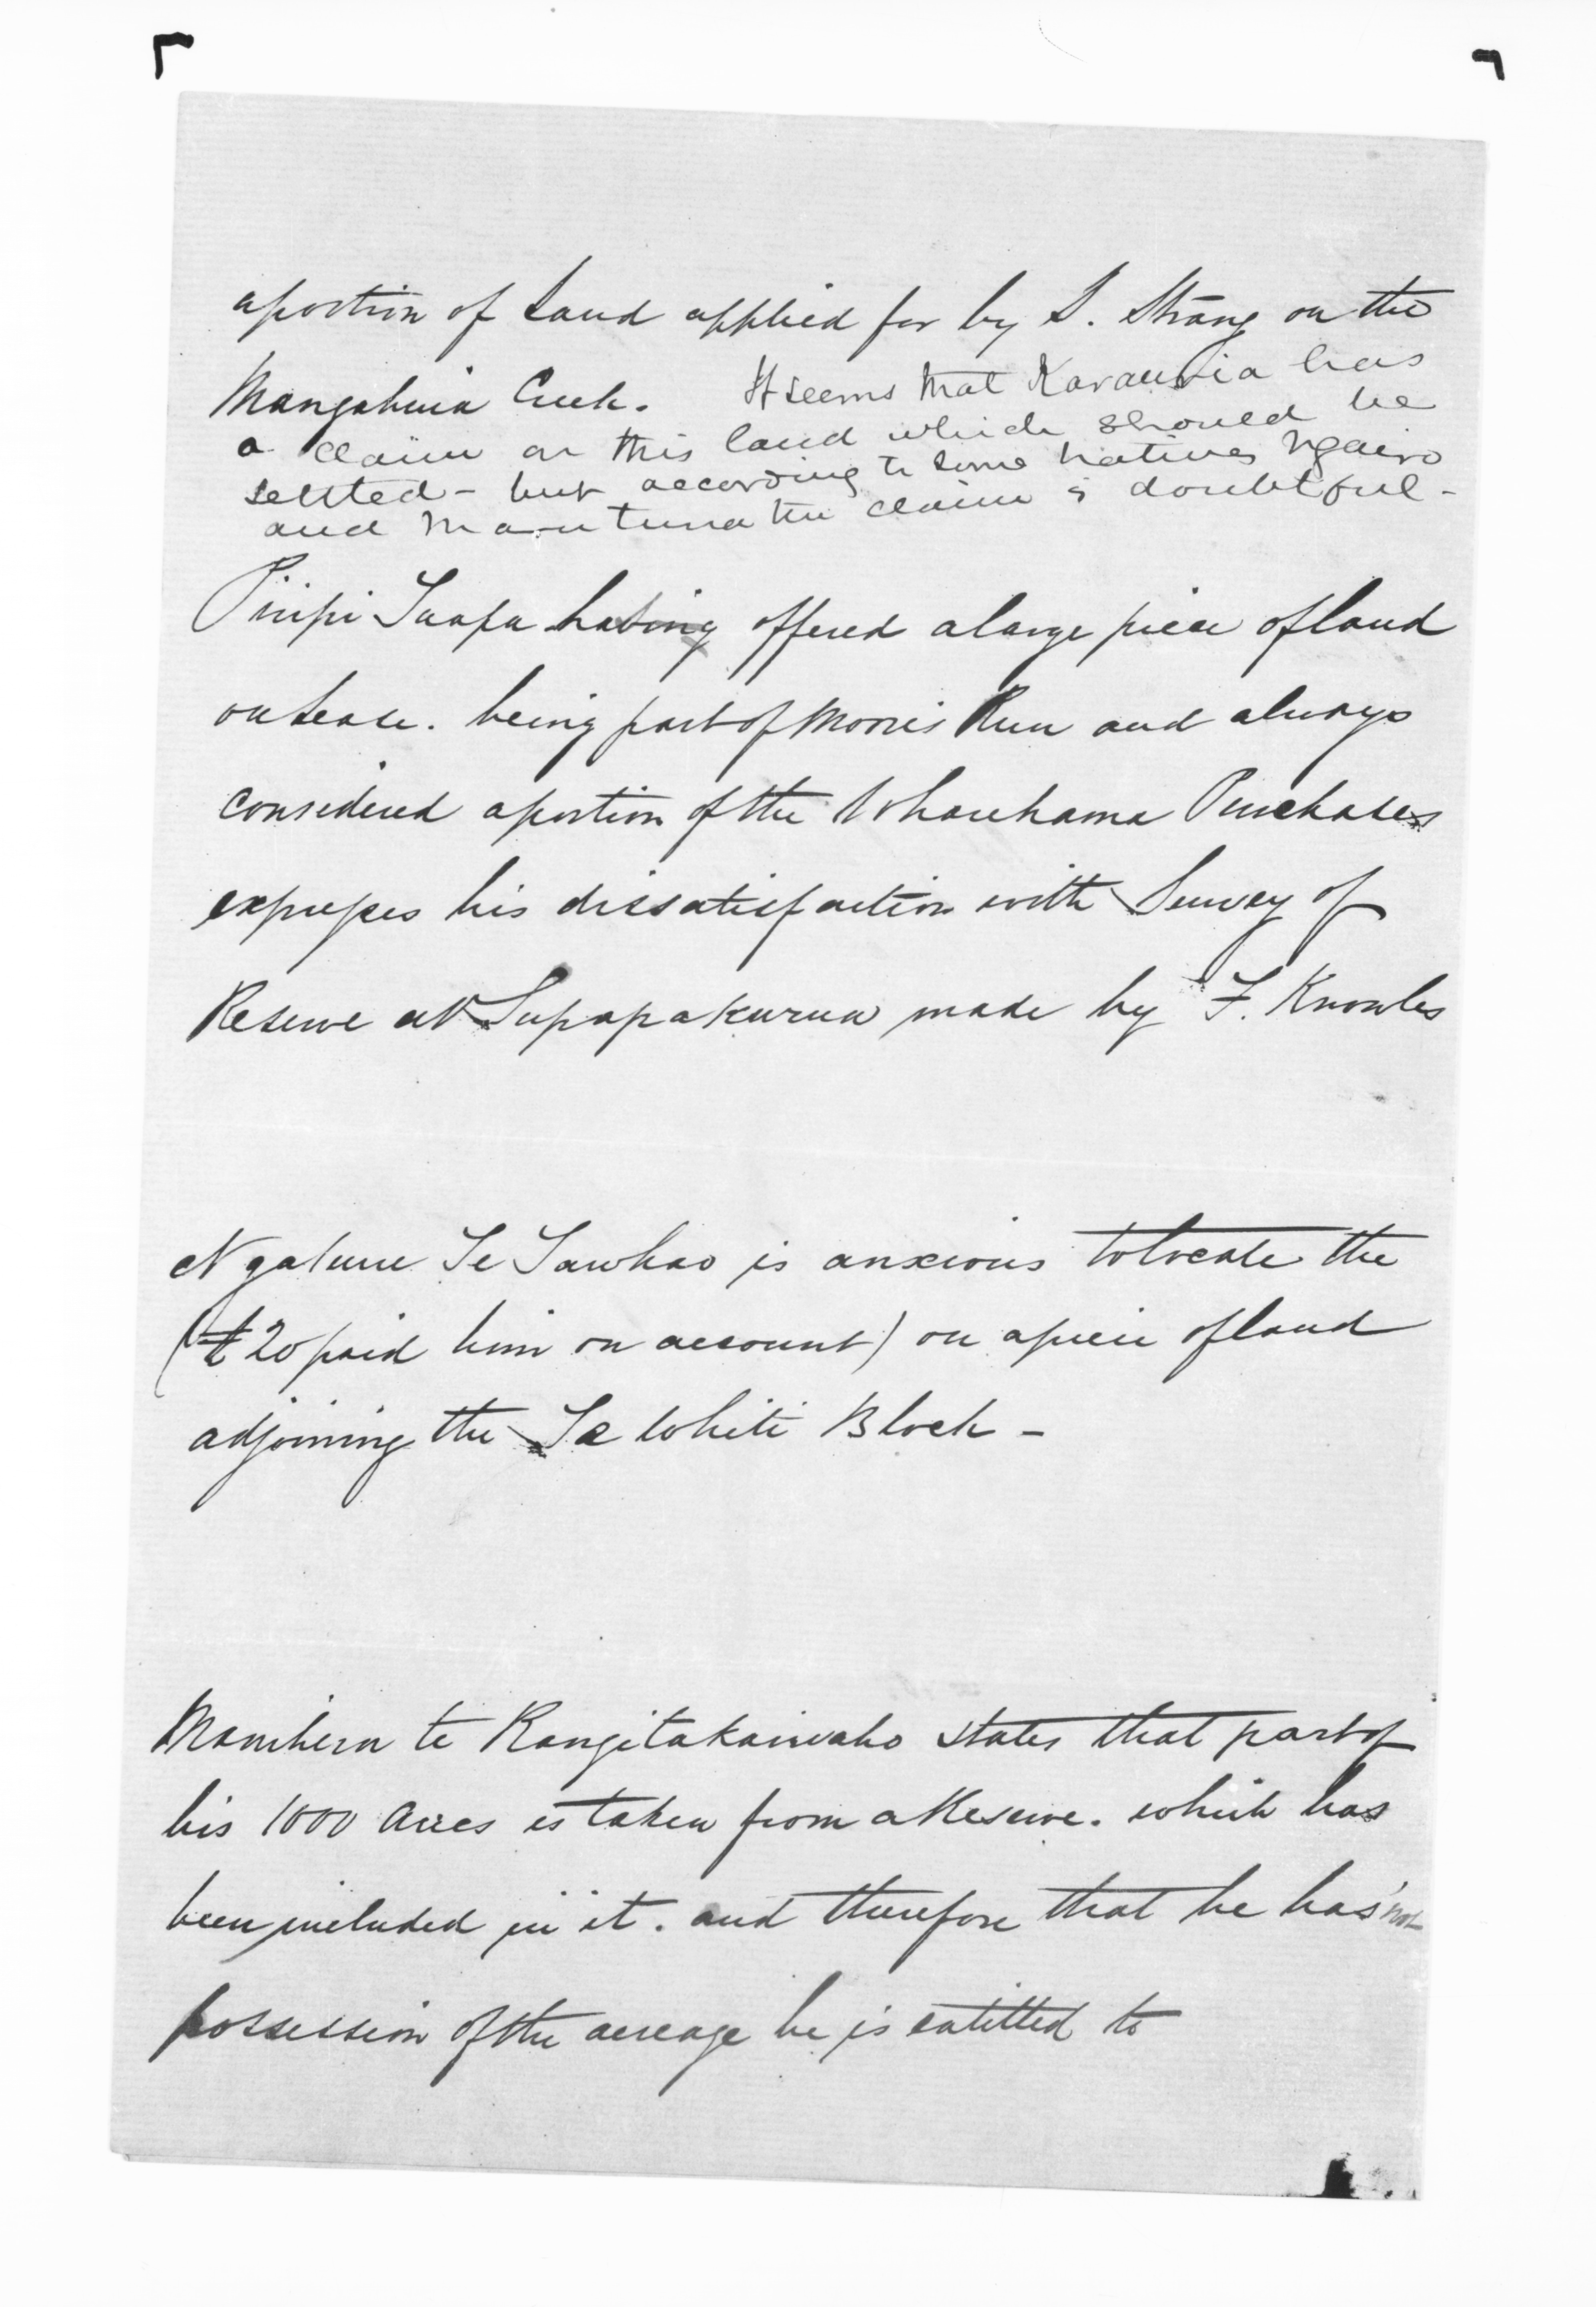 a portion of Land applied for by S. Strang on the
Mangahuia Creek. It seems that Karauria has
a claim on this land which should be
settled - but according to some natives Ngairo
and Manutuna the claim is doubtful -
Piripi offered a large piece of land
on Lease. being part of Morris Run and always
considered a portion of the Whareama Purchases
expresses his dissatisfaction with Survey of
Reserve at Tupapakurua made by F. Knowles
Ngatuere Te Tawhao is anxious to locate the
(£20 paid him on account) on a piece of land
adjoining the Te Whiti Block -
Manihera te Rangitakaiwaho states that part of
his 1000 acres is taken from a Reserve. which has
been included in it. and therefore that he has not
possession of the acreage he is entitled to